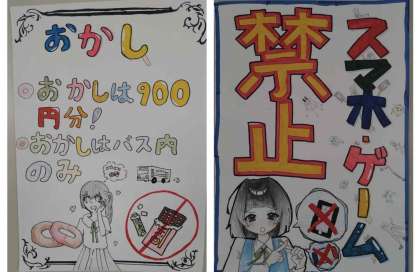 おかし
おかしは900
円分!
おかしはバス内
のみ
スマホ・ゲーム
禁止